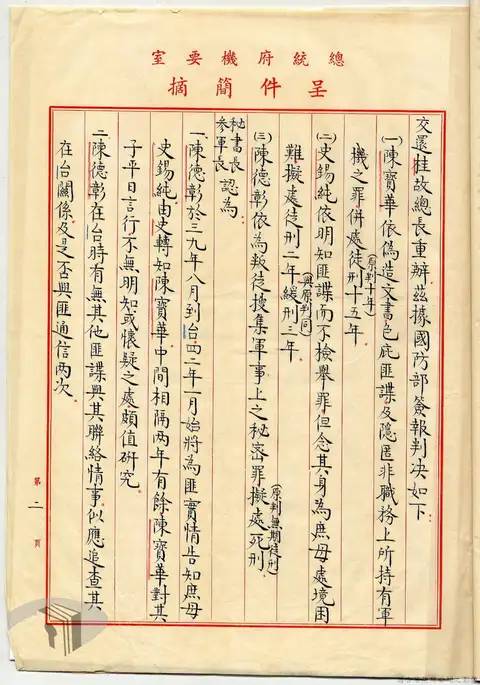 總統府機要室
呈件簡摘
交還桂故總長重辦茲據國防部簽報判決如下
㈠陳寶華依偽造文書包庇匪諜及隱匿非職務上所持有軍
機之罪併處徒刑十五年(原判十年)
㈡史錫純依明知匪諜而不檢舉罪但念其身為庶母處境困
難擬處徒刑二年緩刑三年(與原判同)
㈢陳德彰依為叛徒搜集軍事上之秘密罪擬處死刑(原判無期徒刑)
秘書長
參軍長 認為:
一、陳德彰於三九年八月到台四二年一月始將為匪實情告知庶母
史錫純由史轉知陳寶華中間相隔兩年有餘陳寶華對其
子平日言行不無明知或懷疑之處頗值研究
二、陳德彰在台時有無其他匪諜與其聯絡情事似應追查其
在台關係及是否與匪通信兩次
第二頁